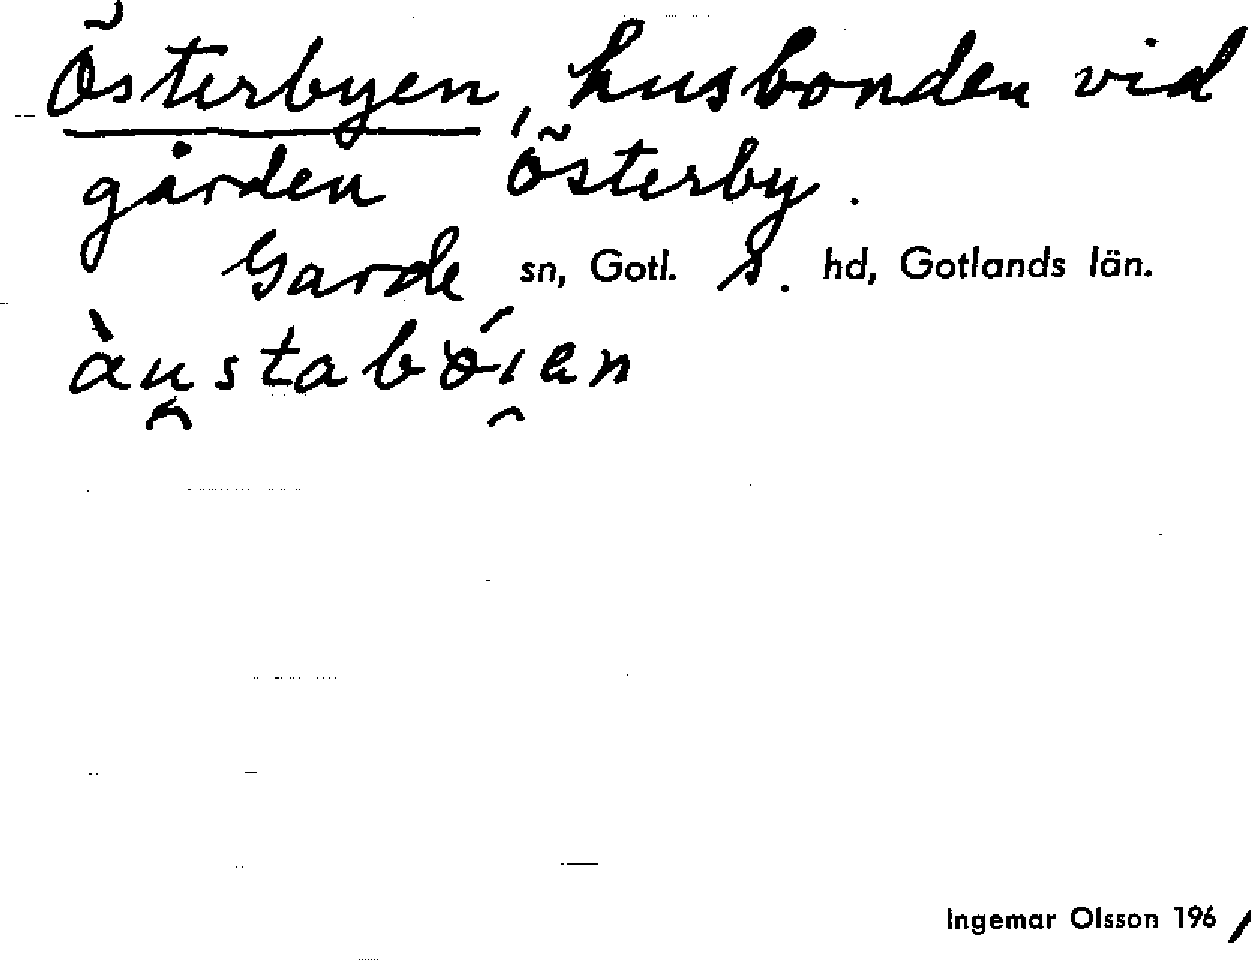 Österbyen, husbonden vid
gården Österby.
Garde sn, Gotl. s. hd, Gotlands län.
àu̯stabǿi̯en
Ingemar Olsson 1961